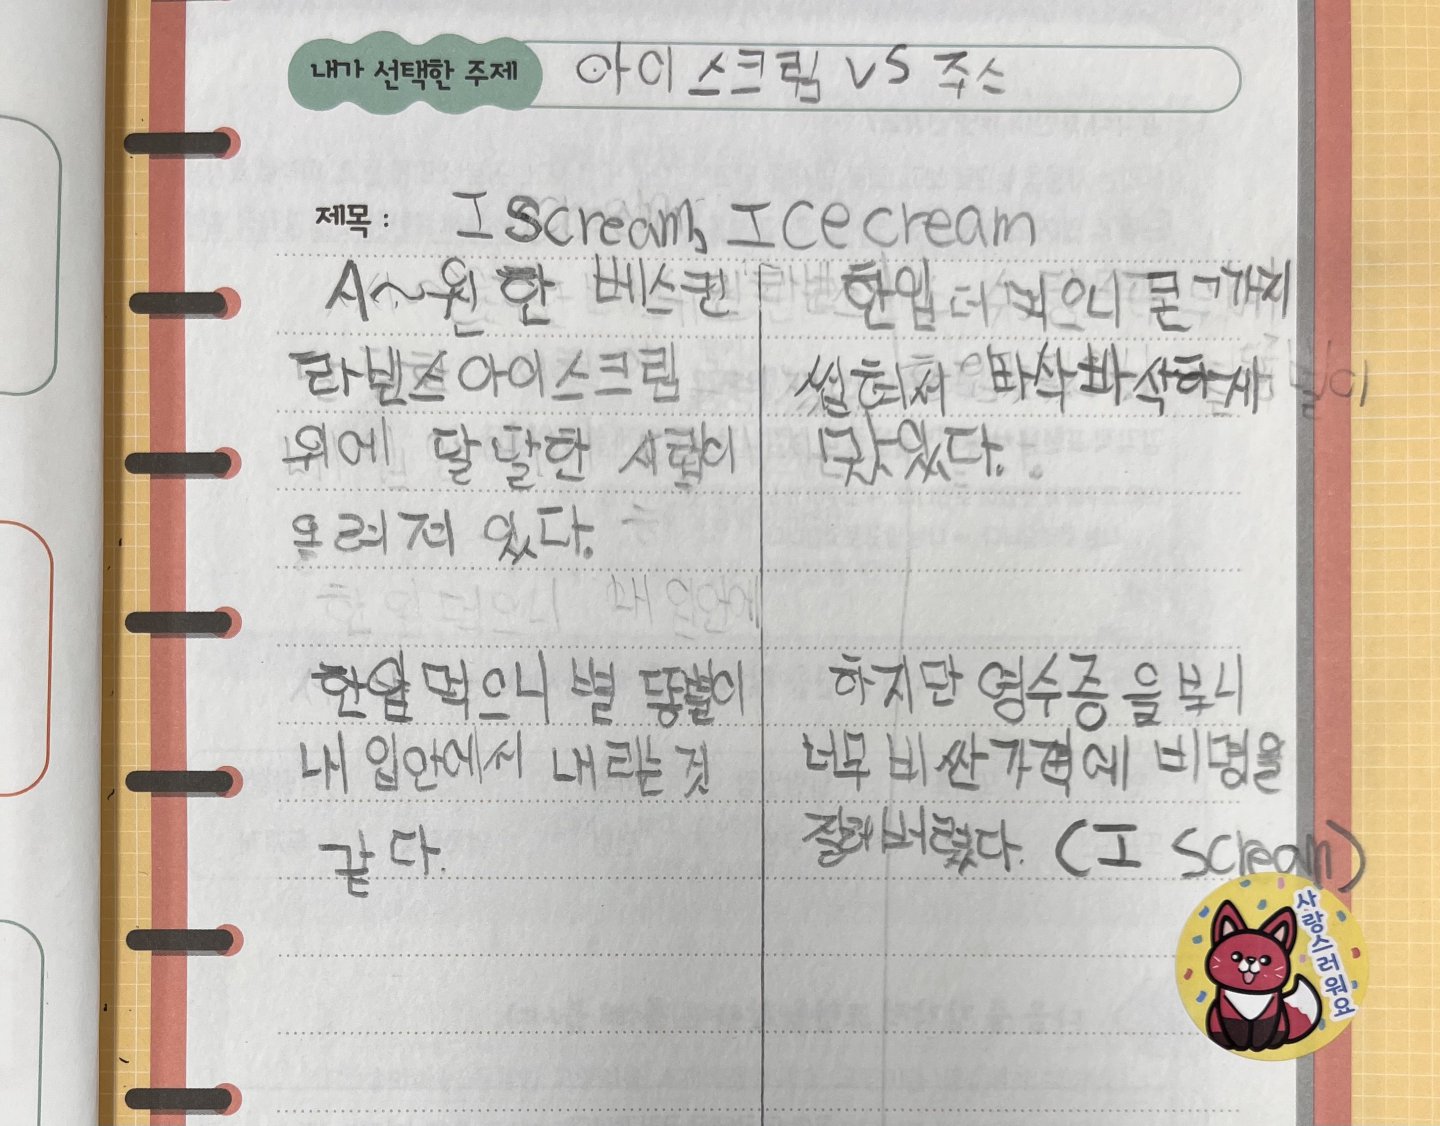 내가 선택한 주제
아이스크림 vs 주스
제목 :
I scream, Ice cream
A~원한 베스킨
라빈스아이스크림
위에 달달한 시럽이
올려져 있다.
한입 먹으니 별똥별이
내 입안에서 내리는 것
같다.
한입 더 먹으니
바삭바삭하게
맛있다.
하지만 영수증을 보니
너무 비싼가격에 비명을
질러버렸다. (I scream)
사랑스러워요